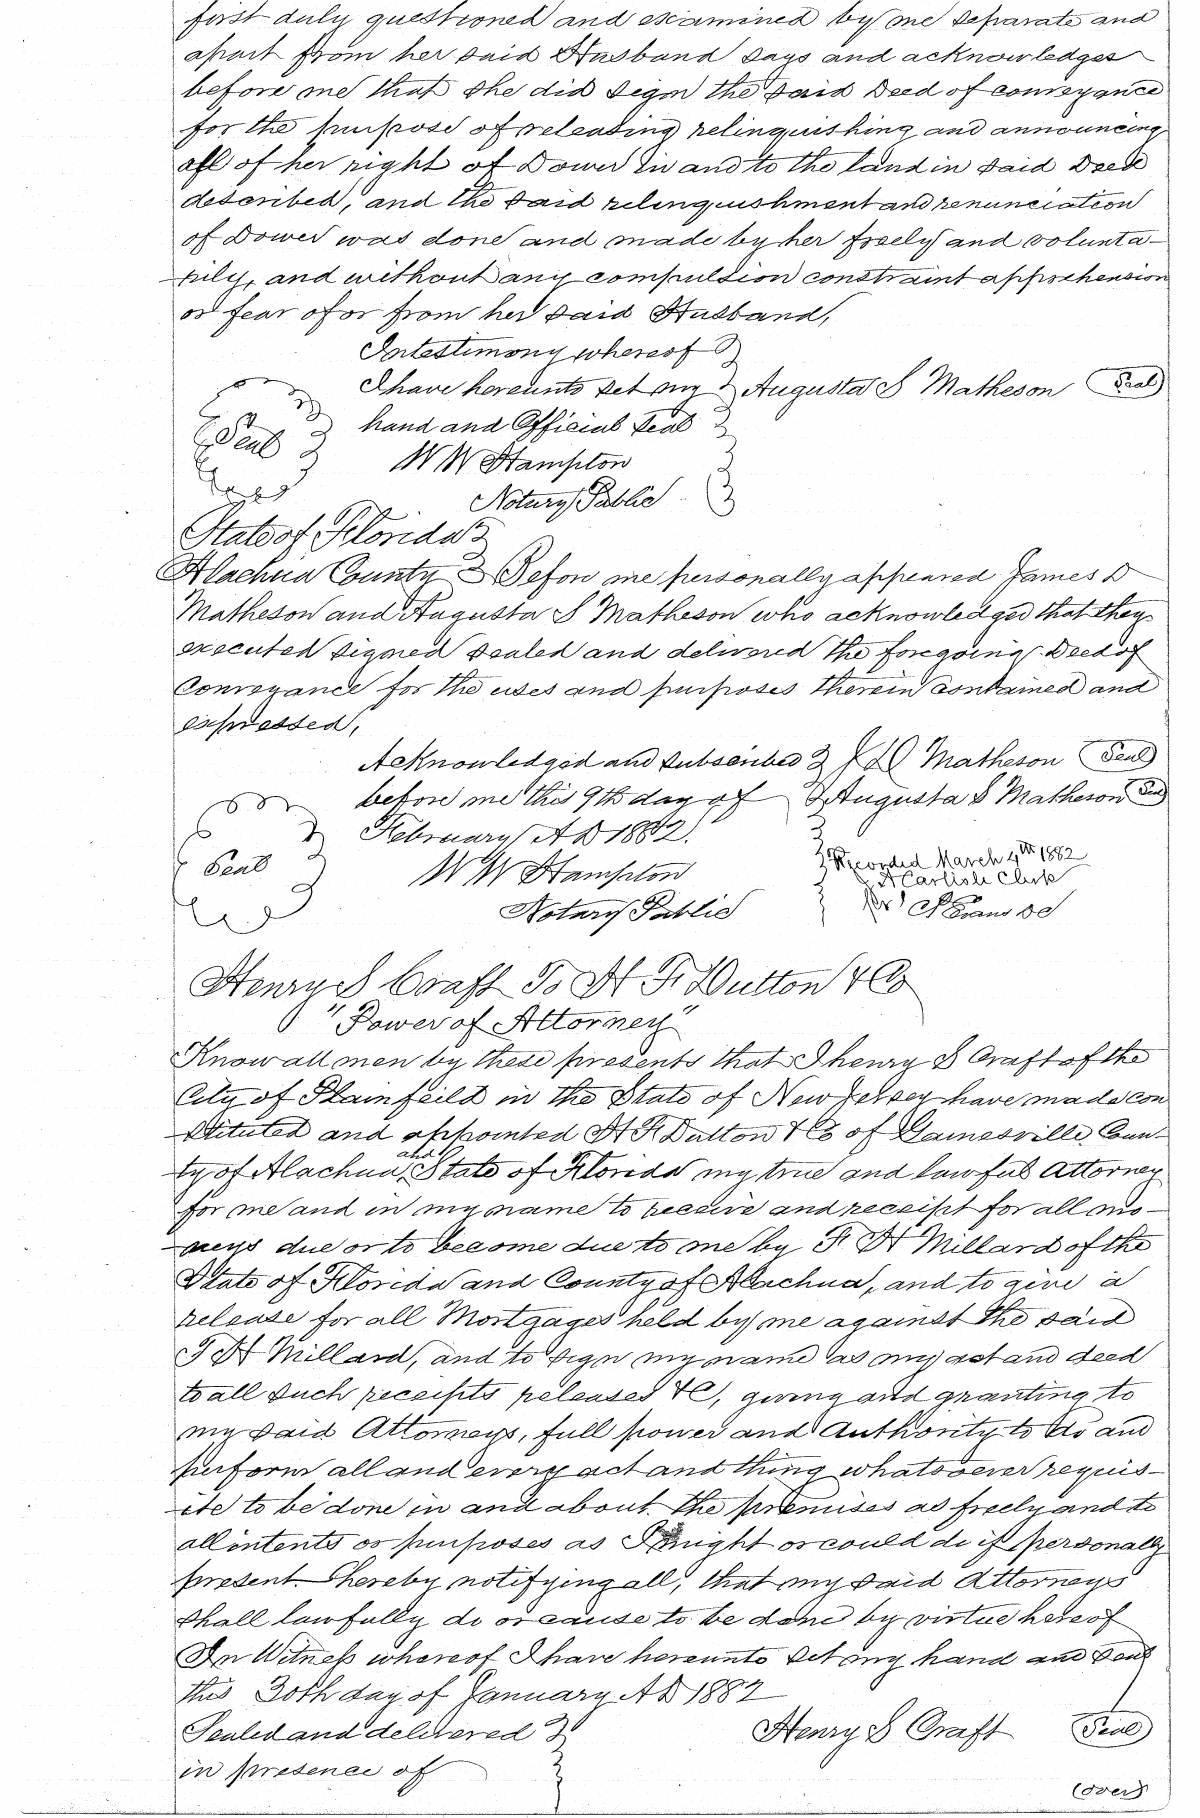 first duly questioned and examined by me separate and
apart from her said Husband says and acknowledges
before me that she did sign the said Deed of conveyance
for the purpose of releasing relinquishing and announcing
all of her right of Dower in and to the land in said Deed
described, and the said relinquishment and renunciation
of Dower was done and made by her freely and volunta-
rily, and without any compulsion constraint apprehension
or fear of or from her said Husband,
In testimony whereof
I have hereunto set my Augusta S Matheson Seal
hand and Official Seal
Seal
W W Hampton
Notary Public
State of Florida
Alachua County Before me personally appeared James D
Matheson and Augusta S Matheson who acknowledged that they
executed signed sealed and delivered the foregoing Deed of
Conveyance for the uses and purposes therein contained and
expressed,
Acknowledged and subscribed J D Matheson Seal
before me this 9th day of Augusta S Matheson Seal
February A D 1882.
Seal
W W Hampton
Notary Public
Recorded March 4th 1882
A Carlisle Clerk
per C P Evans DC
Henry S Craft To H F Dutton & Co
"Power of Attorney"
Know all men by these presents that I henry S Craft of the
City of Plainfeild in the State of New Jersey have made con
stituted and appointed H F Dutton & Co of Gainesville Coun-
ty of Alachua and State of Florida my true and lawful Attorney
for me and in my name to receive and receipt for all mo-
neys due or to become due to me by F H Millard of the
State of Florida and County of Alachua, and to give a
release for all Mortgages held by me against the said
F H Millard, and to sign my name as my act and deed
to all such receipts releases &C, giving and granting to
my said Attorneys, full power and Authority to do and
perform all and every act and thing whatsoever requis-
ite to be done in and about the premises as freely and to
all intents or purposes as I might or could do if personally
present hereby notifying all, that my said Attorneys
shall lawfully do or cause to be done by virtue hereof
In Witness whereof I have hereunto set my hand and seal
this 30th day of January A D 1882
Sealed and delivered Henry S Craft Seal
in presence of
(over)